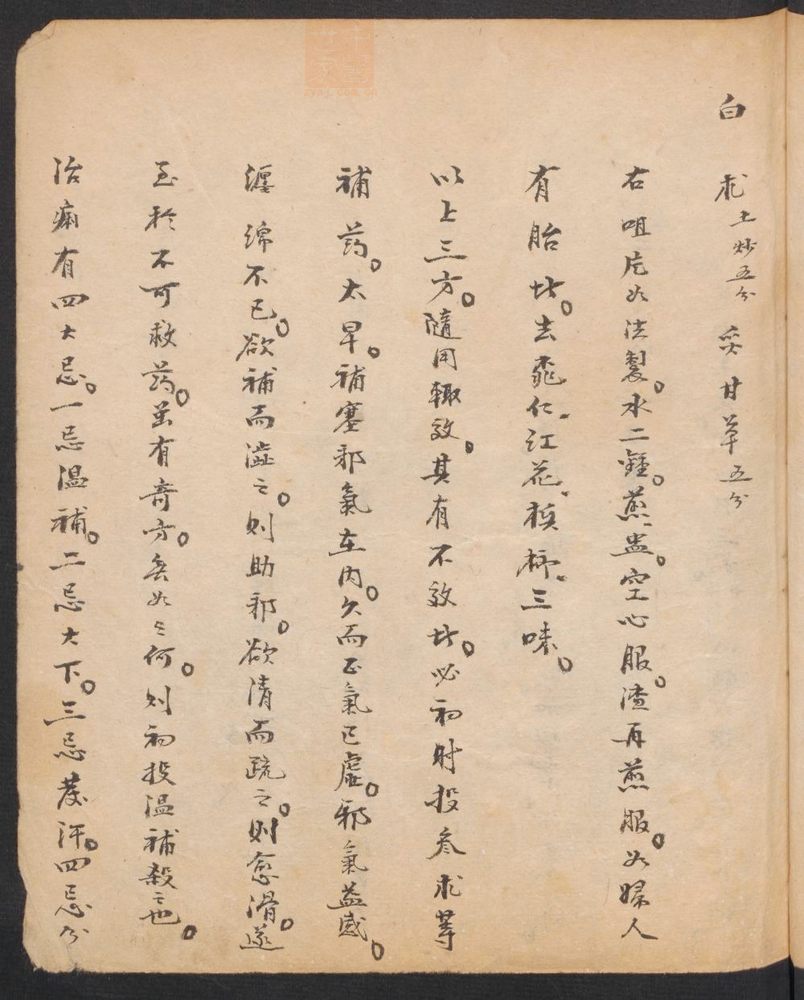 白
朮土炒五分 炙甘草五分
右咀片如法製。水二鍾。煎半。空心服。渣再煎服。如婦人
有胎者。去桃仁。红花。檳榔。三味。
以上三方。隨用輒效。其有不效者。必初时投參朮等
補药。太早。補塞邪氣在内。久而正氣已虛。邪氣益盛。
纏綿不已。欲補而澁之。则助邪。欲清而疏之。则愈滑。遂
至於不可救药。虽有奇方。無如之何。则初投温補殺之也。
治痢有四大忌。一忌温補。二忌大下。三忌發汗。四忌分